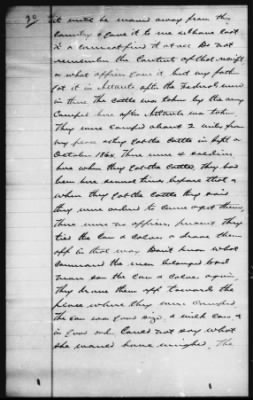 20
it must be moved away from the
country & gave it to me &
it & cannot find it at all Do not
remember the contents of that receipt
or what officer gave it but my father
got it in Atlanta after the Federals were
in there. The cattle was taken by the army
Camped here after Atlanta was taken.
They were camped about 2 miles from
my place & they got the cattle in Sept or
October 1864. There were soldiers
here when they got the cattle. They had
been here several times before that &
when they got the cattle they said
they were ordered to come after them,
There were no officers present. They
tied the cow & calves & drove them
off in that way Don't know what
command the men belonged to &
never saw the cow & calves again.
They drove them off toward the
place where they were camped
The cow was good size, a milk cow &
in good order. Could not say what
she would have weighed. The